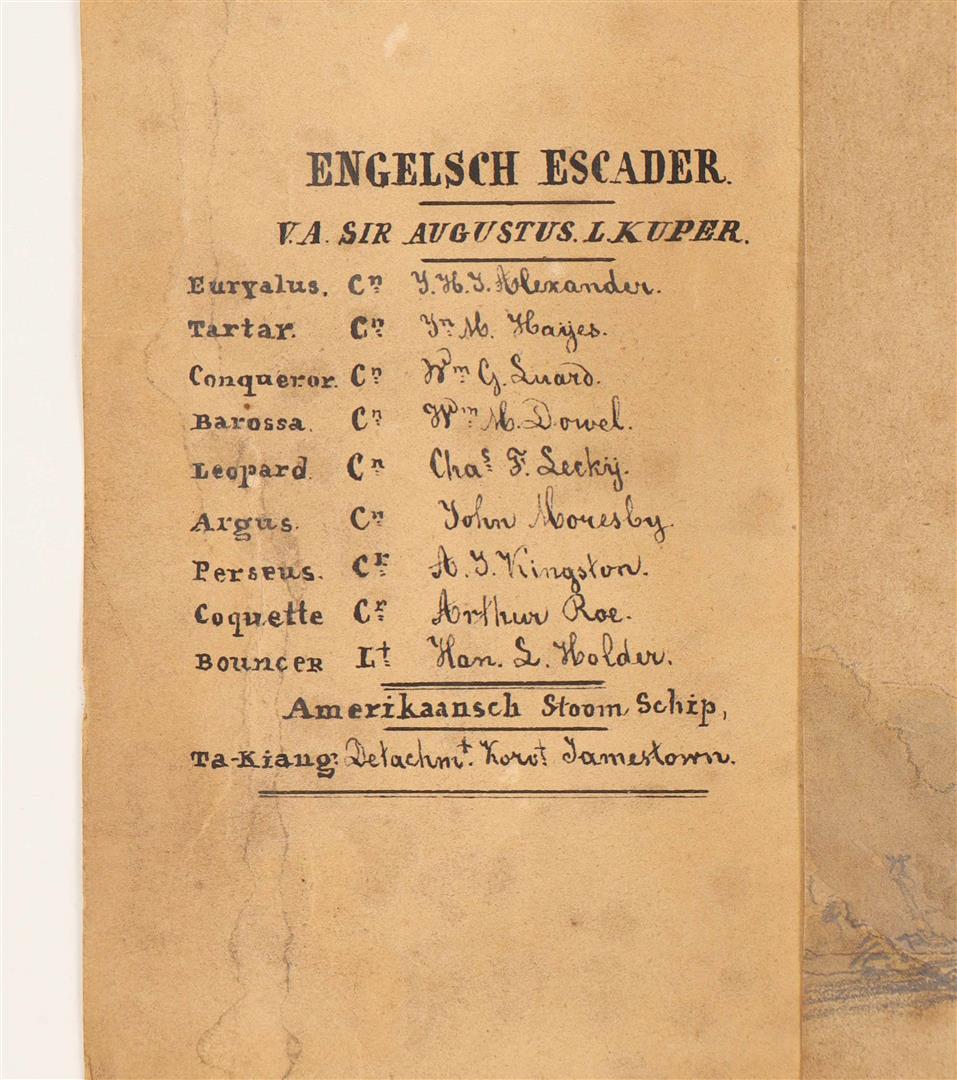 ENGELSCH ESCADER.
V.A. SIR AUGUSTUS. L. KUPER.
Euryalus. Cn J. H. J. Alexander.
Tartar. Cn Jn M. Hayes.
Conqueror. Cn Wm G. Luard.
Barossa. Cn Wm M. Dowel.
Leopard. Cn Chas F. Leckij.
Argus. Cn John Moresby.
Perseus. Cr A. J. Kingston.
Coquette Cr Arthur Roe.
Bouncer Lt Han. L. Holder.
Amerikaansch Stoom Schip,
Ta-Kiang: Detachmt. Korvt Jamestown.